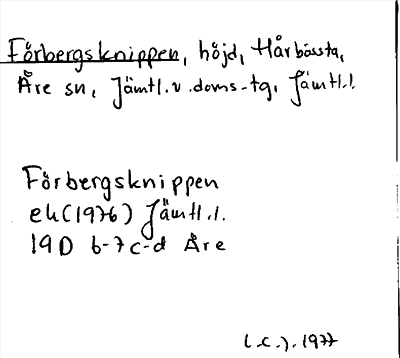 Förbergsknippen, höjd, Hårbössta,
Åre sn, Jämtl. v. doms-tg, Jämtl.l.
Förbergsknippen
ek(1976) Jämtl.l.
19D 6-7c-d Åre
1977